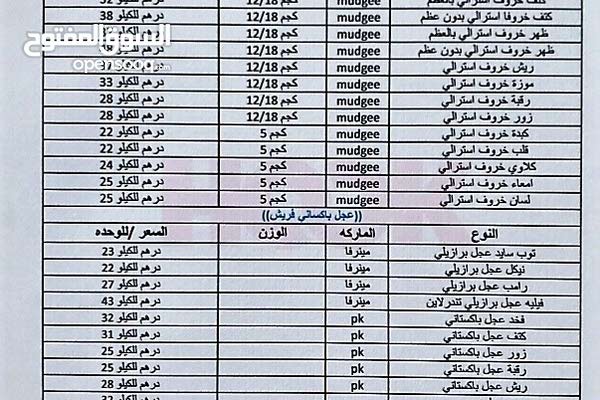 السوق المفتوح
كتف خروف استرالي بالعظم mudgee كجم 12/18 درهم للكيلو 32
كتف خروفا استرالي بدون عظم mudgee كجم 12/18 درهم للكيلو 38
ظهر خروف استرالي بالعظم mudgee كجم 12/18
ظهر خروف استرالي بدون عظم mudgee كجم 12/18
ريش خروف استرالي mudgee كجم 12/18 درهم للكيلو
موزة خروف استرالي mudgee كجم 12/18 درهم للكيلو 33
رقبة خروف استرالي mudgee كجم 12/18 درهم للكيلو 28
زور خروف استرالي mudgee كجم 12/18 درهم للكيلو 28
كبدة خروف استرالي mudgee كجم 5 درهم للكيلو 22
قلب خروف استرالي mudgee كجم 5 درهم للكيلو 22
كلاوي خروف استرالي mudgee كجم 5 درهم للكيلو 24
امعاء خروف استرالي mudgee كجم 5 درهم للكيلو 25
لسان خروف استرالي mudgee كجم 5 درهم للكيلو 25
((عجل باكساني فريش))
النوع الماركه الوزن السعر /للوحده
توب سايد عجل برازيلي مينرفا درهم للكيلو 23
نيكل عجل برازيلي مينرفا درهم للكيلو 22
رامب عجل برازيلي مينرفا درهم للكيلو 27
فيليه عجل برازيلي تندرلاين مينرفا درهم للكيلو 43
فخد عجل باكستاني pk درهم للكيلو 32
كتف عجل باكستاني pk درهم للكيلو 31
زور عجل باكستاني pk درهم للكيلو 25
رقبة عجل باكستاني pk درهم للكيلو 25
ريش عجل باكستاني pk درهم للكيلو 28